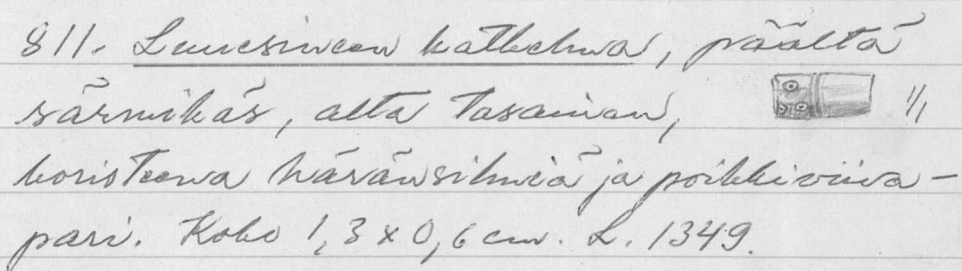 811. Luuesineen katkelma, päältä
särmikäs, alta tasainen, 1/1
koristeena häränsilmiä ja poikkiviiva-
pari. Koko 1,3 x 0,6 cm. L. 1349.